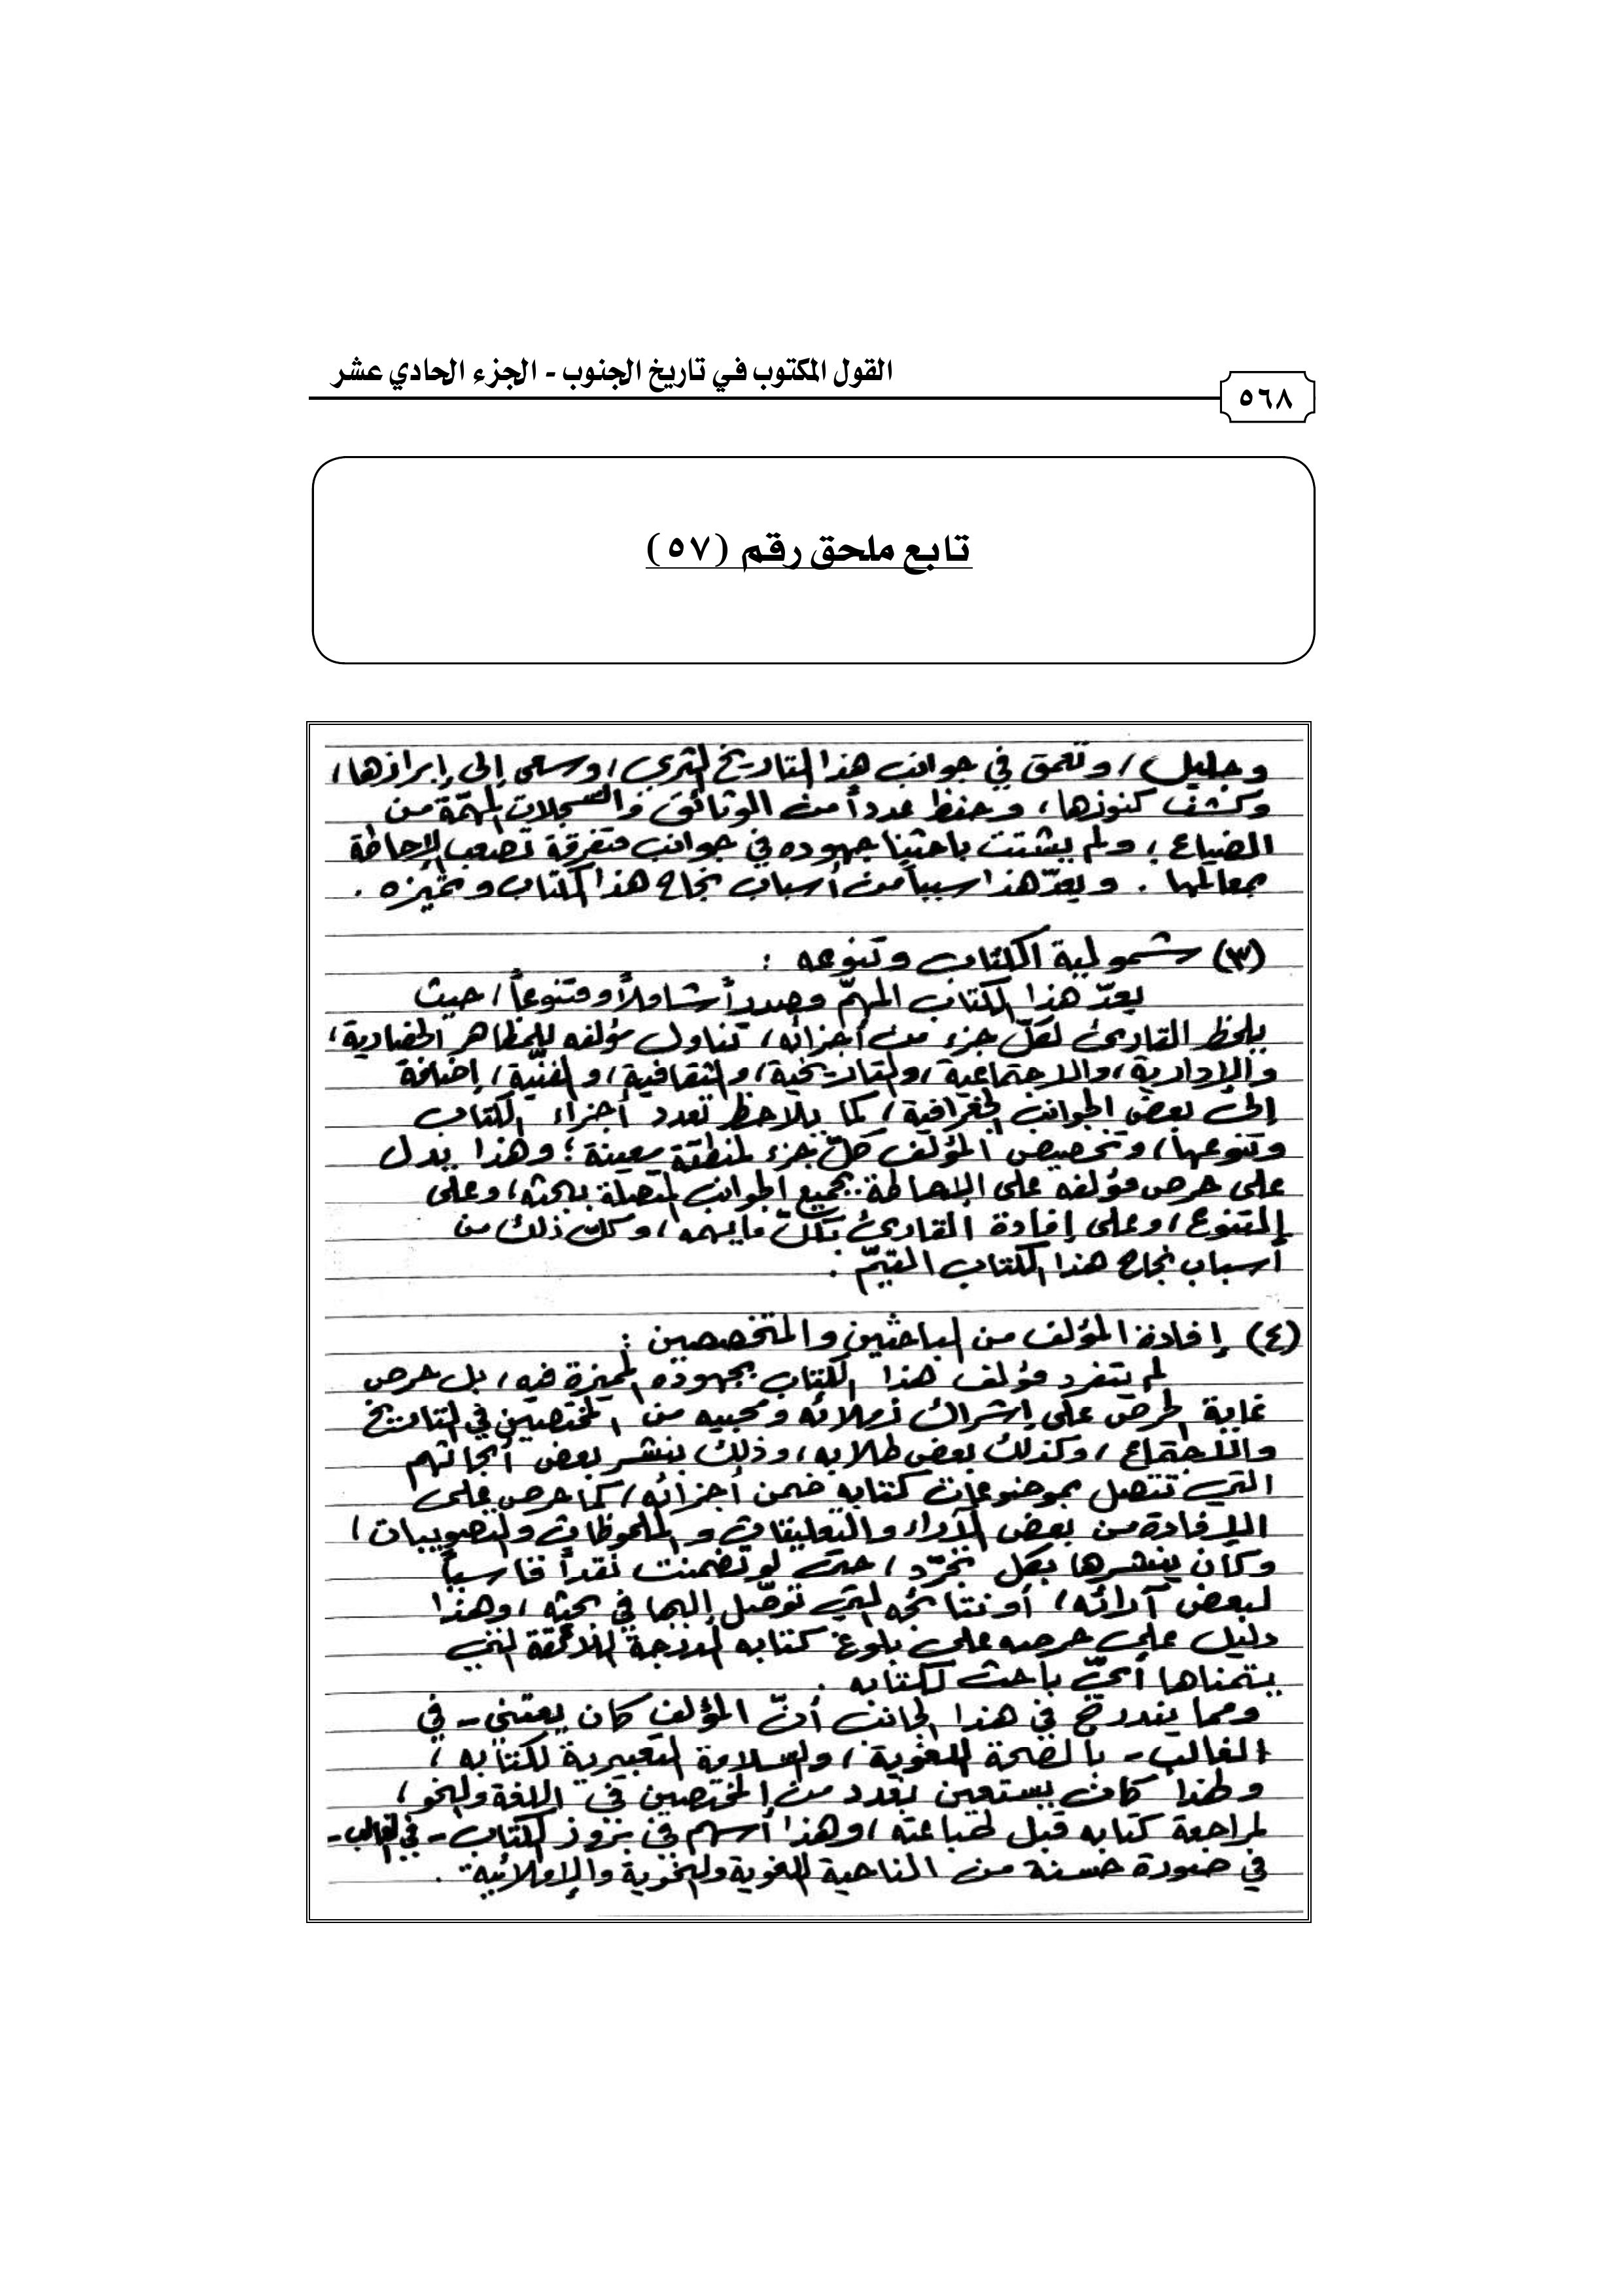 القول المكتوب في تاريخ الجنوب - الجزء الحادي عشر
٥٦٨
تابع ملحق رقم (٥٧)
وجليل، وتعمق في جوانب هذا التاريخ الثري، وسعى إلى إبرازها،
وكشف كنوزها، وحفظ عدداً من الوثائق والسجلات المهمّة من
الضياع، ولم يشتت باحثنا جهوده في جوانب متفرقة تصعب الإحاطة
بمعالمها. ويعدّ هذا سبباً من أسباب نجاح هذا الكتاب وتميزه.
(٣) شمولية الكتاب وتنوعه :
يعدّ هذا الكتاب المهمّ مصدراً شاملاً ومتنوعاً، حيث
يلحظ القارئ لكلّ جزء من أجزائه، تناول مؤلفه للمظاهر الحضارية،
والإدارية، والاجتماعية، والتاريخية، والثقافية، والفنيّة، إضافة
إلى بعض الجوانب الجغرافية، كما يلاحظ تعدد أجزاء الكتاب
وتنوعها، وتخصيص المؤلف كلّ جزء لمنطقة معينة؛ وهذا يدل
على حرص مؤلفه على الإحاطة بجميع الجوانب المتصلة ببحثه، وعلى
التنوع، وعلى إفادة القارئ بكلّ ما يهمه، وكلّ ذلك من
أسباب نجاح هذا الكتاب القيّم.
(٤) إفادة المؤلف من الباحثين والمتخصصين :
لم يتفرد مؤلف هذا الكتاب بجهوده المميزة فيه، بل حرص
غاية الحرص على إشراك زملائه ومحبيه من المختصين في التاريخ
والاجتماع، وكذلك بعض طلابه، وذلك بنشر بعض أبحاثهم
التي تتصل بموضوعات كتابه ضمن أجزائه، كما حرص على
الإفادة من بعض الآراء والتعليقات والملحوظات والتصويبات،
وكان ينشرها بكل تجرّد، حتى لو تضمنت نقداً قاسياً
لبعض آرائه، أو نتائجه التي توصّل إليها في بحثه، وهذا
دليل على حرصه على بلوغ كتابه الدرجة اللائقة التي
يتمناها أيّ باحث لكتابه.
ومما يندرج في هذا الجانب أنّ المؤلف كان يعتني - في
الغالب - بالصحة اللغوية، والسلامة التعبيرية لكتابه،
ولهذا كان يستعين بعدد من المختصين في اللغة والنحو،
لمراجعة كتابه قبل طباعته، وهذا أسهم في بروز الكتاب - في الغالب -
في صورة حسنة من الناحية اللغوية والنحوية والإملائية.